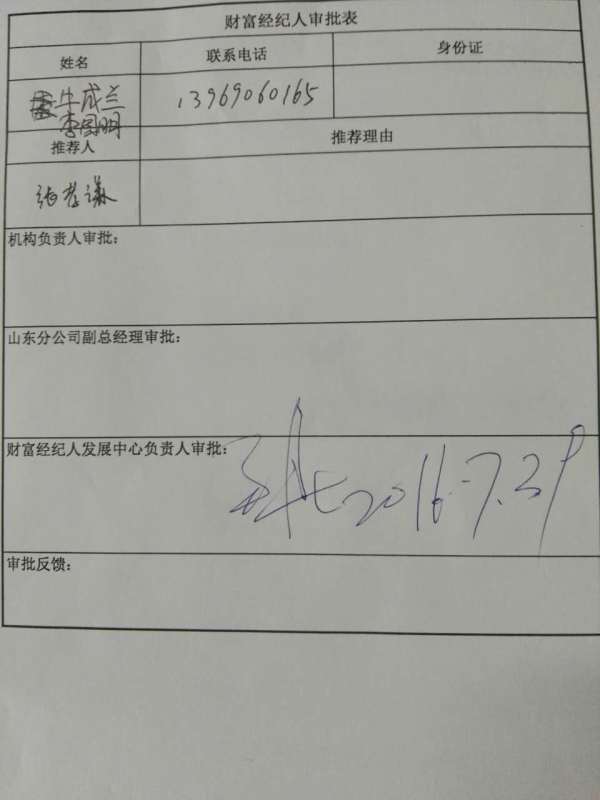 财富经纪人审批表
姓名 联系电话 身份证
牛成兰 13969060165
李国明
推荐人 推荐理由
张孝谦
机构负责人审批：
山东分公司副总经理审批：
财富经纪人发展中心负责人审批：
2016.7.29
审批反馈：